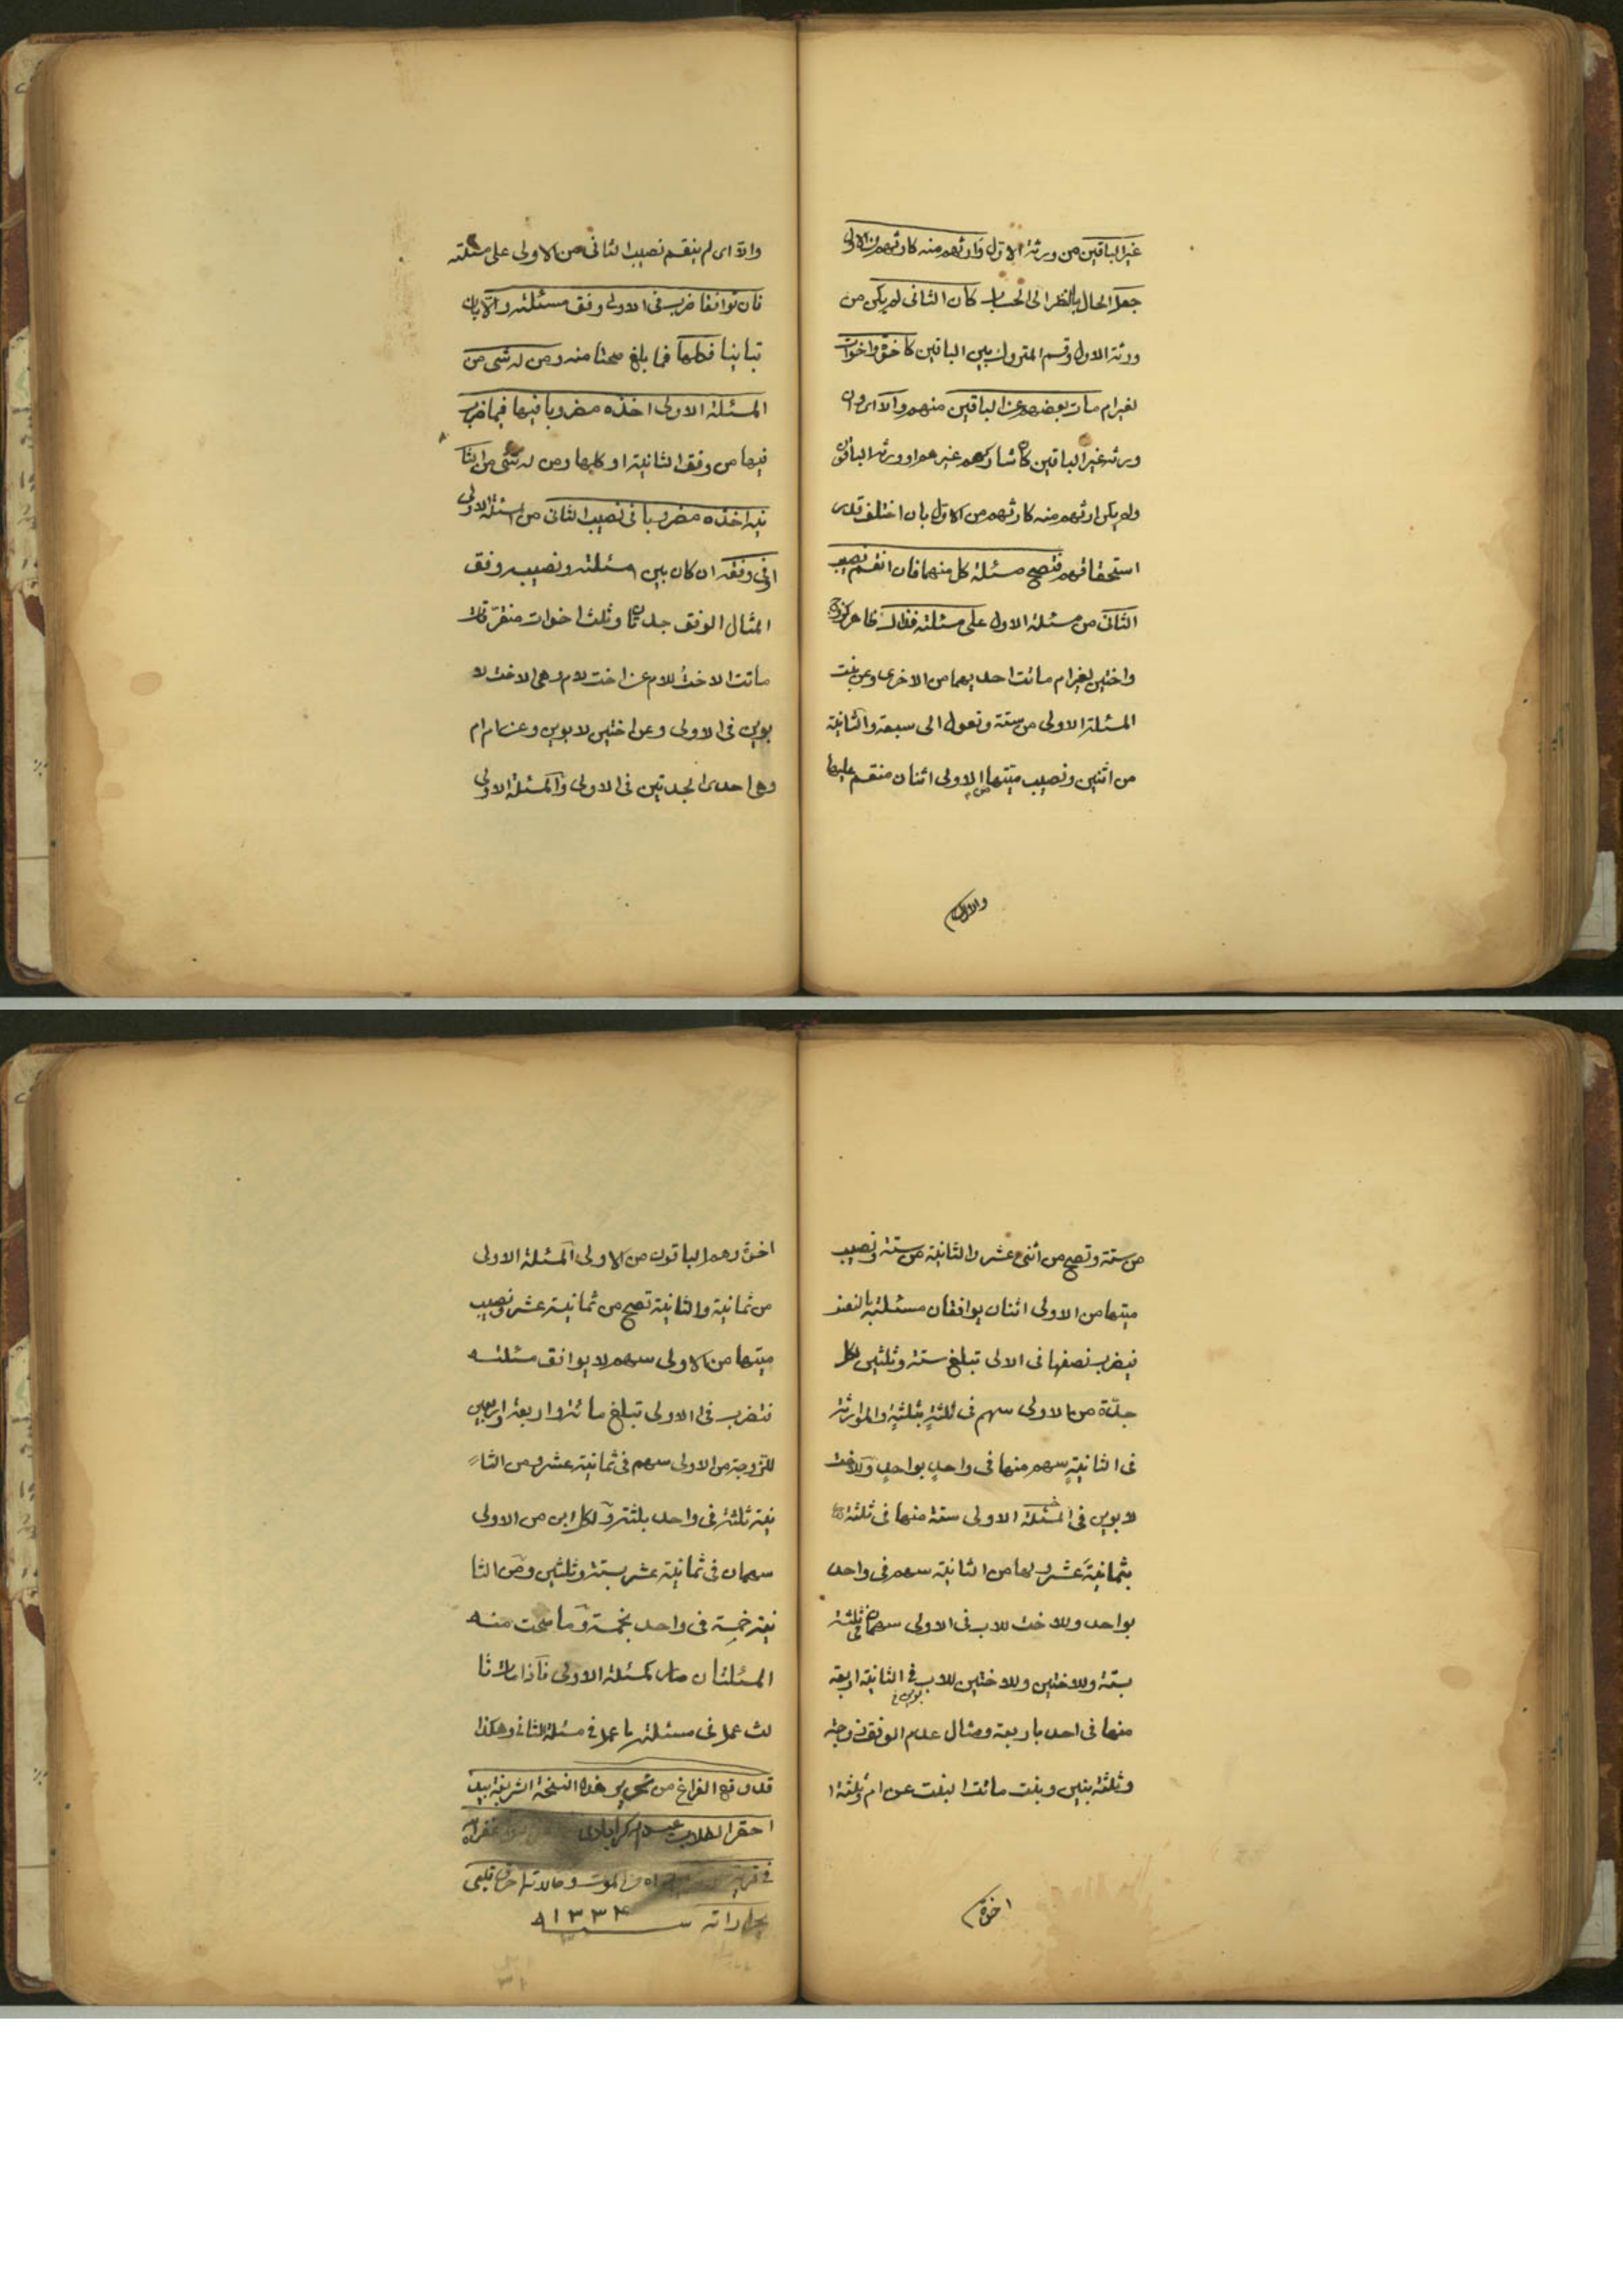 غير الباقين من ورثة الاول وارثهم منه كارثهم من الاول
جعل الحال بالنظر الى الحساب كان الثانى لم يكن من
ورثة الاول وقسم المتروك بين الباقين كاخوة واخوات
لغير ام مات بعضهم عن الباقين منهم والا اى وان
ورثه غير الباقين كان شاركهم غيرهم او ورثه الباقون
ولم يكن ارثهم منه كارثهم من الاول بان اختلف قدر
استحقاقهم فتصح مسئلة كل منهما فان انقسم نصيب
الثانى من مسئلة الاول على مسئلته فذاك ظاهر كزوج
واختين لغير ام ماتت احديهما من الاخرى وعن بنت
المسئلة الاولى من ستة وتعول الى سبعة والثانية
من اثنين ونصيب ميتها من الاولى اثنان منقسم عليها
والا اى لم
والا اى لم ينقسم نصيب الثانى من الاولى على مسئلته
فان توافقا ضرب فى الاولى وفق مسئلته والا بان
تباينا فكلها فما بلغ صحتا منه ومن له شئ من
المسئلة الاولى اخذه مضروبا فيها فيما ضرب
فيها من وفق الثانية او كلها ومن له شئ من الثا
نية اخذه مضروبا فى نصيب الثانى من المسئلة الاولى
او فى وفقه ان كان بين مسئلته ونصيبه وفق
المثال الوفق جدتان وثلث اخوات متفرقات
ماتت الاخت للام عن اخت لام وهى الاخت لا
بوين فى الاولى وعن اختين لابوين وعن ام ام
وهى احدى الجدتين فى الاولى والمسئلة الاولى
من ستة وتصح من اثنى عشر والثانية من ستة ونصيب
ميتها من الاولى اثنان يوافقان مسئلته بالنصف
فيضرب نصفها فى الاولى تبلغ ستة وثلثين لكل
جدة من الاولى سهم فى ثلثة بثلثة والوارثة
فى الثانية سهم منها فى واحد بواحد وللاخت
لابوين فى المسئلة الاولى ستة منها فى ثلثة
بثمانية عشر ولها من الثانية سهم فى واحد
بواحد وللاخت للاب فى الاولى سهمان فى ثلثة
بستة وللاختين وللاختين للاب بوين فى الثانية اربعة
منها فى احد باربعة ومثال عدم الوفق زوجة
وثلثة بنين وبنت ماتت البنت عن ام وثلثة ا
اخوة
اخوة وهم الباقون من الاولى المسئلة الاولى
من ثمانية والثانية تصح من ثمانية عشر ونصيب
ميتها من الاولى سهم لا يوافق مسئلته
فتضرب فى الاولى تبلغ مائة واربعة واربعين
للزوجة من الاولى سهم فى ثمانية عشر ومن الثا
نية ثلثة فى واحد بثلثة ولكل ابن من الاولى
سهمان فى ثمانية عشر بستة وثلثين ومن الثا
نية خمسة فى واحد بخمسة وما صحت منه
المسئلتان صار كمسئلة الاولى فاذا مات ثا
لث عمل فى مسئلته ما عمل فى مسئلة الثانى وهكذا
قد وقع الفراغ من تحرير هذه النسخة الشريفة بيد
احقر الطلاب
سنه ١٣٣٤